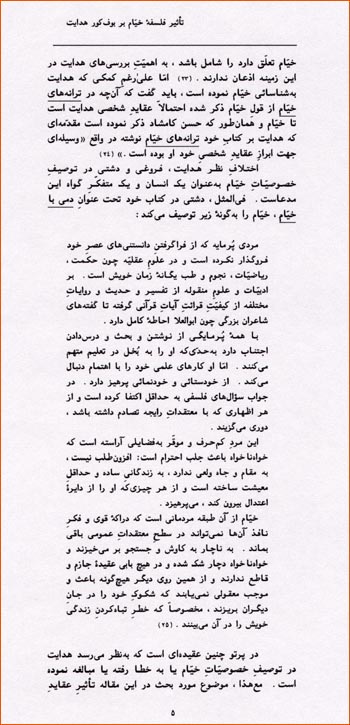 تأثیر فلسفهٔ خیّام بر بوف‌کور هدایت
خیّام تعلّق دارد را شامل باشد ، به اهمیّتِ بررسی‌های هدایت در
این زمینه اذعان ندارند . (۲۳) امّا علی‌رغم کمکی که هدایت
به‌شناسائی خیّام نموده است ، باید گفت که آن‌چه در ترانه‌های
خیّام از قول خیّام ذکر شده احتمالاً عقایدِ شخصی هدایت است
تا خیّام و همان‌طور که حسن کامشاد ذکر نموده است مقدّمه‌ای
که هدایت بر کتاب خود ترانه‌های خیّام نوشته در واقع «وسیله‌ای
جهت ابرازِ عقایدِ شخصیِ خود او بوده است .» (۲۴)
اختلافِ نظر هدایت ، فروغی و دشتی در توصیفِ
خصوصیّاتِ خیّام به‌عنوان یک انسان و یک متفکّر گواه این
مدعاست . فی‌المثل ، دشتی در کتاب خود تحت عنوانِ دمی با
خیّام ، خیّام را به‌گونهٔ زیر توصیف می‌کند :
مردی پُرمایه که از فراگرفتنِ دانستنی‌های عصر خود
فروگذار نکرده است و در علومِ عقلیّه چون حکمت ،
ریاضیّات ، نجوم و طب یگانهٔ زمان خویش است . بر
ادبیّات و علومِ منقوله از تفسیر و حدیث و روایاتِ
مختلفه از کیفیّتِ قرائتِ آیاتِ قرآنی گرفته تا گفته‌های
شاعران بزرگی چون ابوالعلا احاطهٔ کامل دارد .
با همهٔ پُرمایگی از نوشتن و بحث و درس‌دادن
اجتناب دارد به‌حدّی‌که او را به بُخل در تعلیم متهم
می‌کنند . امّا او کارهای علمی خود را با اهتمام دنبال
می‌کند . از خودستائی و خودنمائی پرهیز دارد . در
جواب سؤال‌های فلسفی به حداقل اکتفا کرده است و از
هر اظهاری که با معتقداتِ رایجه تصادم داشته باشد ،
دوری می‌گزیند .
این مردِ کم‌حرف و موقّر به‌فضایلی آراسته است که
خواه‌ناخواه باعث جلب احترام است: افزون‌طلب نیست ،
به مقام و جاه ولعی ندارد ، به زندگانی ساده و حداقلِ
معیشت ساخته است و از هر چیزی‌که او را از دایرهٔ
اعتدال بیرون کند ، می‌پرهیزد .
خیّام از آن طبقه مردمانی است که درّاکهٔ قوی و فکرِ
نافذ آن‌ها نمی‌تواند در سطح معتقداتِ عمومی باقی
بماند . به ناچار به کاوش و جستجو بر می‌خیزند و
خواه‌ناخواه دچار شک شده و در هیچ بابی عقیدهٔ جازم و
قاطع ندارند و از همین روی دیگر هیچ‌گونه باعث و
موجب معقولی نمی‌یابند که شکوکِ خود را در جانِ
دیگران بریزند ، مخصوصاً که خطرِ تباه‌کردنِ زندگیِ
خویش را در آن می‌بینند . (۲۵)
در پرتو چنین عقیده‌ای است که به‌نظر می‌رسد هدایت
در توصیفِ خصوصیّاتِ خیّام یا به خطا رفته یا مبالغه نموده
است . مع‌هذا ، موضوع مورد بحث در این مقاله تأثیرِ عقایدِ
۵